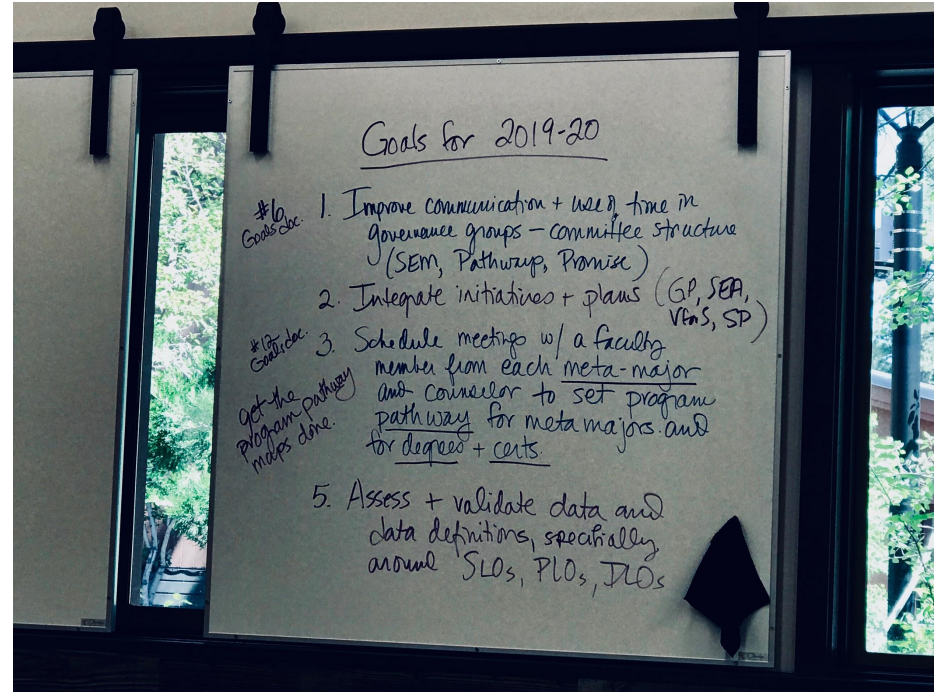 Goals for 2019-20
#6
Goals doc.
1. Improve communication + use of time in
governance groups – committee structure
(SEM, Pathways, Promise)
2. Integrate initiatives + plans (GP, SEA,
VEnS, SP)
#12
Goals doc.
3. Schedule meetings w/ a faculty
member from each meta-major
and counselor to set program
pathway for meta majors and
for degrees + certs.
get the
program pathway
maps done.
5. Assess + validate data and
data definitions, specifially
around SLOs, PLOs, ILOs